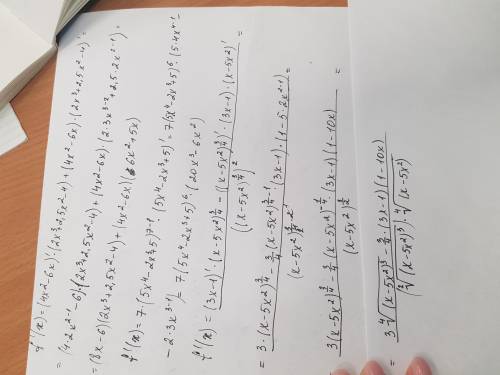 f'(x) = (4x²-6x)'·(2x³+2,5x²-4)+(4x²-6x)·(2x³+2,5x²-4)' =
= (4·2x²⁻¹-6)·(2x³+2,5x²-4)+(4x²-6x)·(2·3x³⁻¹+2,5·2x²⁻¹) =
= (8x-6)(2x³+2,5x²-4)+(4x²-6x)(6x²+5x)
f'(x) = 7·(5x⁴-2x³+5)⁷⁻¹·(5x⁴-2x³+5)' = 7(5x⁴-2x³+5)⁶·(5·4x⁴⁻¹-
-2·3x³⁻¹) = 7(5x⁴-2x³+5)⁶·(20x³-6x²)
f'(x) = ((3x-1)'·(x-5x²)^(3/4) - ((x-5x²)^(3/4))'·(3x-1)·(x-5x²)') / ((x-5x²)^(3/4))² =
= (3·(x-5x²)^(3/4) - 3/4·(x-5x²)^(3/4-1)·(3x-1)·(1-5·2x²⁻¹)) / =
= (3(x-5x²)^(3/4) - 3/4(x-5x²)^(-1/4)·(3x-1)(1-10x)) / =
=